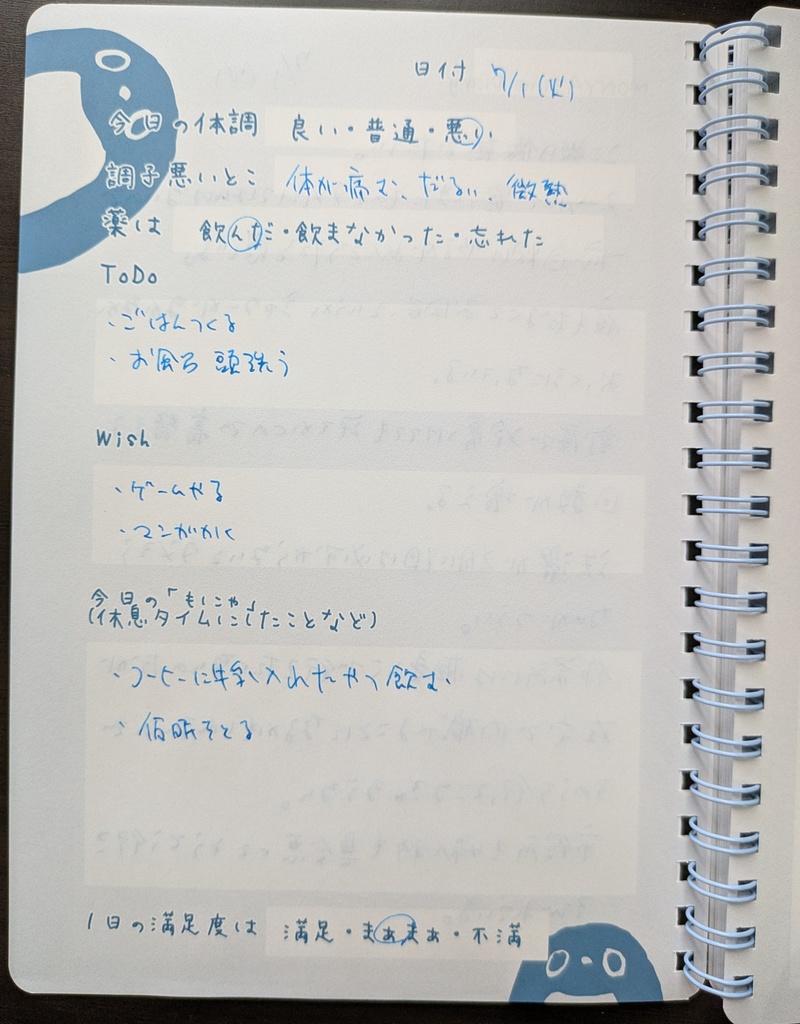 日付 7/1(火)
今日の体調 良い・普通・悪い
調子悪いとこ 体が痛む、だるい、微熱
薬は 飲んだ・飲まなかった・忘れた
ToDo
・ごはんつくる
・お風呂 頭洗う
Wish
・ゲームやる
・マンガかく
今日の「もにゃ」
(休息タイムにしたことなど)
・コーヒーに牛乳入れたやつ飲む
・仮眠をとる
1日の満足度は 満足・まぁまぁ・不満